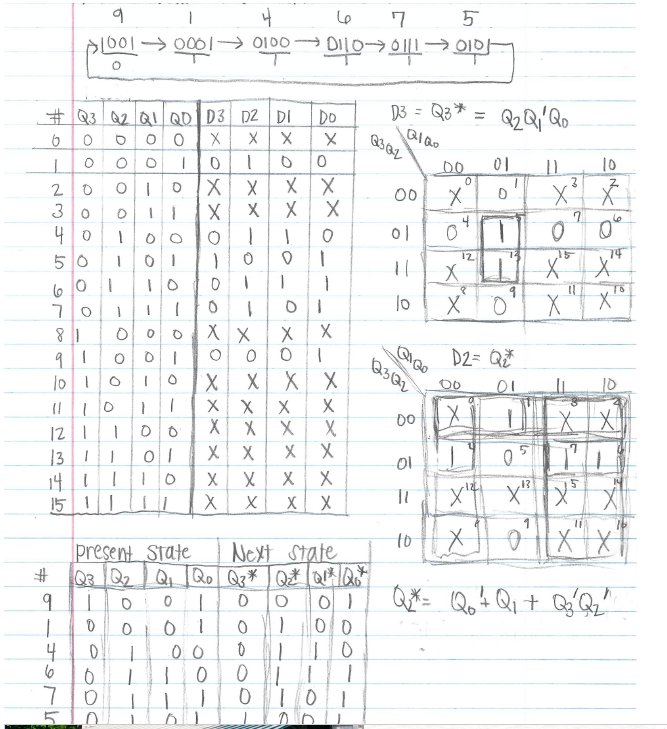 9 1 4 6 7 5
1001 → 0001 → 0100 → 0110 → 0111 → 0101
0 1 1 1 1 1
# Q3 Q2 Q1 Q0 D3 D2 D1 D0
0 0 0 0 0 X X X X
1 0 0 0 1 0 1 0 0
2 0 0 1 0 X X X X
3 0 0 1 1 X X X X
4 0 1 0 0 0 1 1 0
5 0 1 0 1 1 0 0 1
6 0 1 1 0 0 1 1 1
7 0 1 1 1 0 1 0 1
8 1 0 0 0 X X X X
9 1 0 0 1 0 0 0 1
10 1 0 1 0 X X X X
11 1 0 1 1 X X X X
12 1 1 0 0 X X X X
13 1 1 0 1 X X X X
14 1 1 1 0 X X X X
15 1 1 1 1 X X X X
D3 = Q3* = Q2Q1'Q0
Q3Q2 Q1Q0
00 01 11 10
00 X0 01 X3 X2
01 04 15 07 06
11 X12 113 X15 X14
10 X8 09 X11 X10
D2 = Q2*
Q3Q2 Q1Q0
00 01 11 10
00 X0 11 X3 X2
01 14 05 17 16
11 X12 X13 X15 X14
10 X8 09 X11 X10
Q2* = Q0' + Q1 + Q3'Q2'
present state Next state
# Q3 Q2 Q1 Q0 Q3* Q2* Q1* Q0*
9 1 0 0 1 0 0 0 1
1 0 0 0 1 0 1 0 0
4 0 1 0 0 0 1 1 0
6 0 1 1 0 0 1 1 1
7 0 1 1 1 0 1 0 1
5 0 1 0 1 1 0 0 1